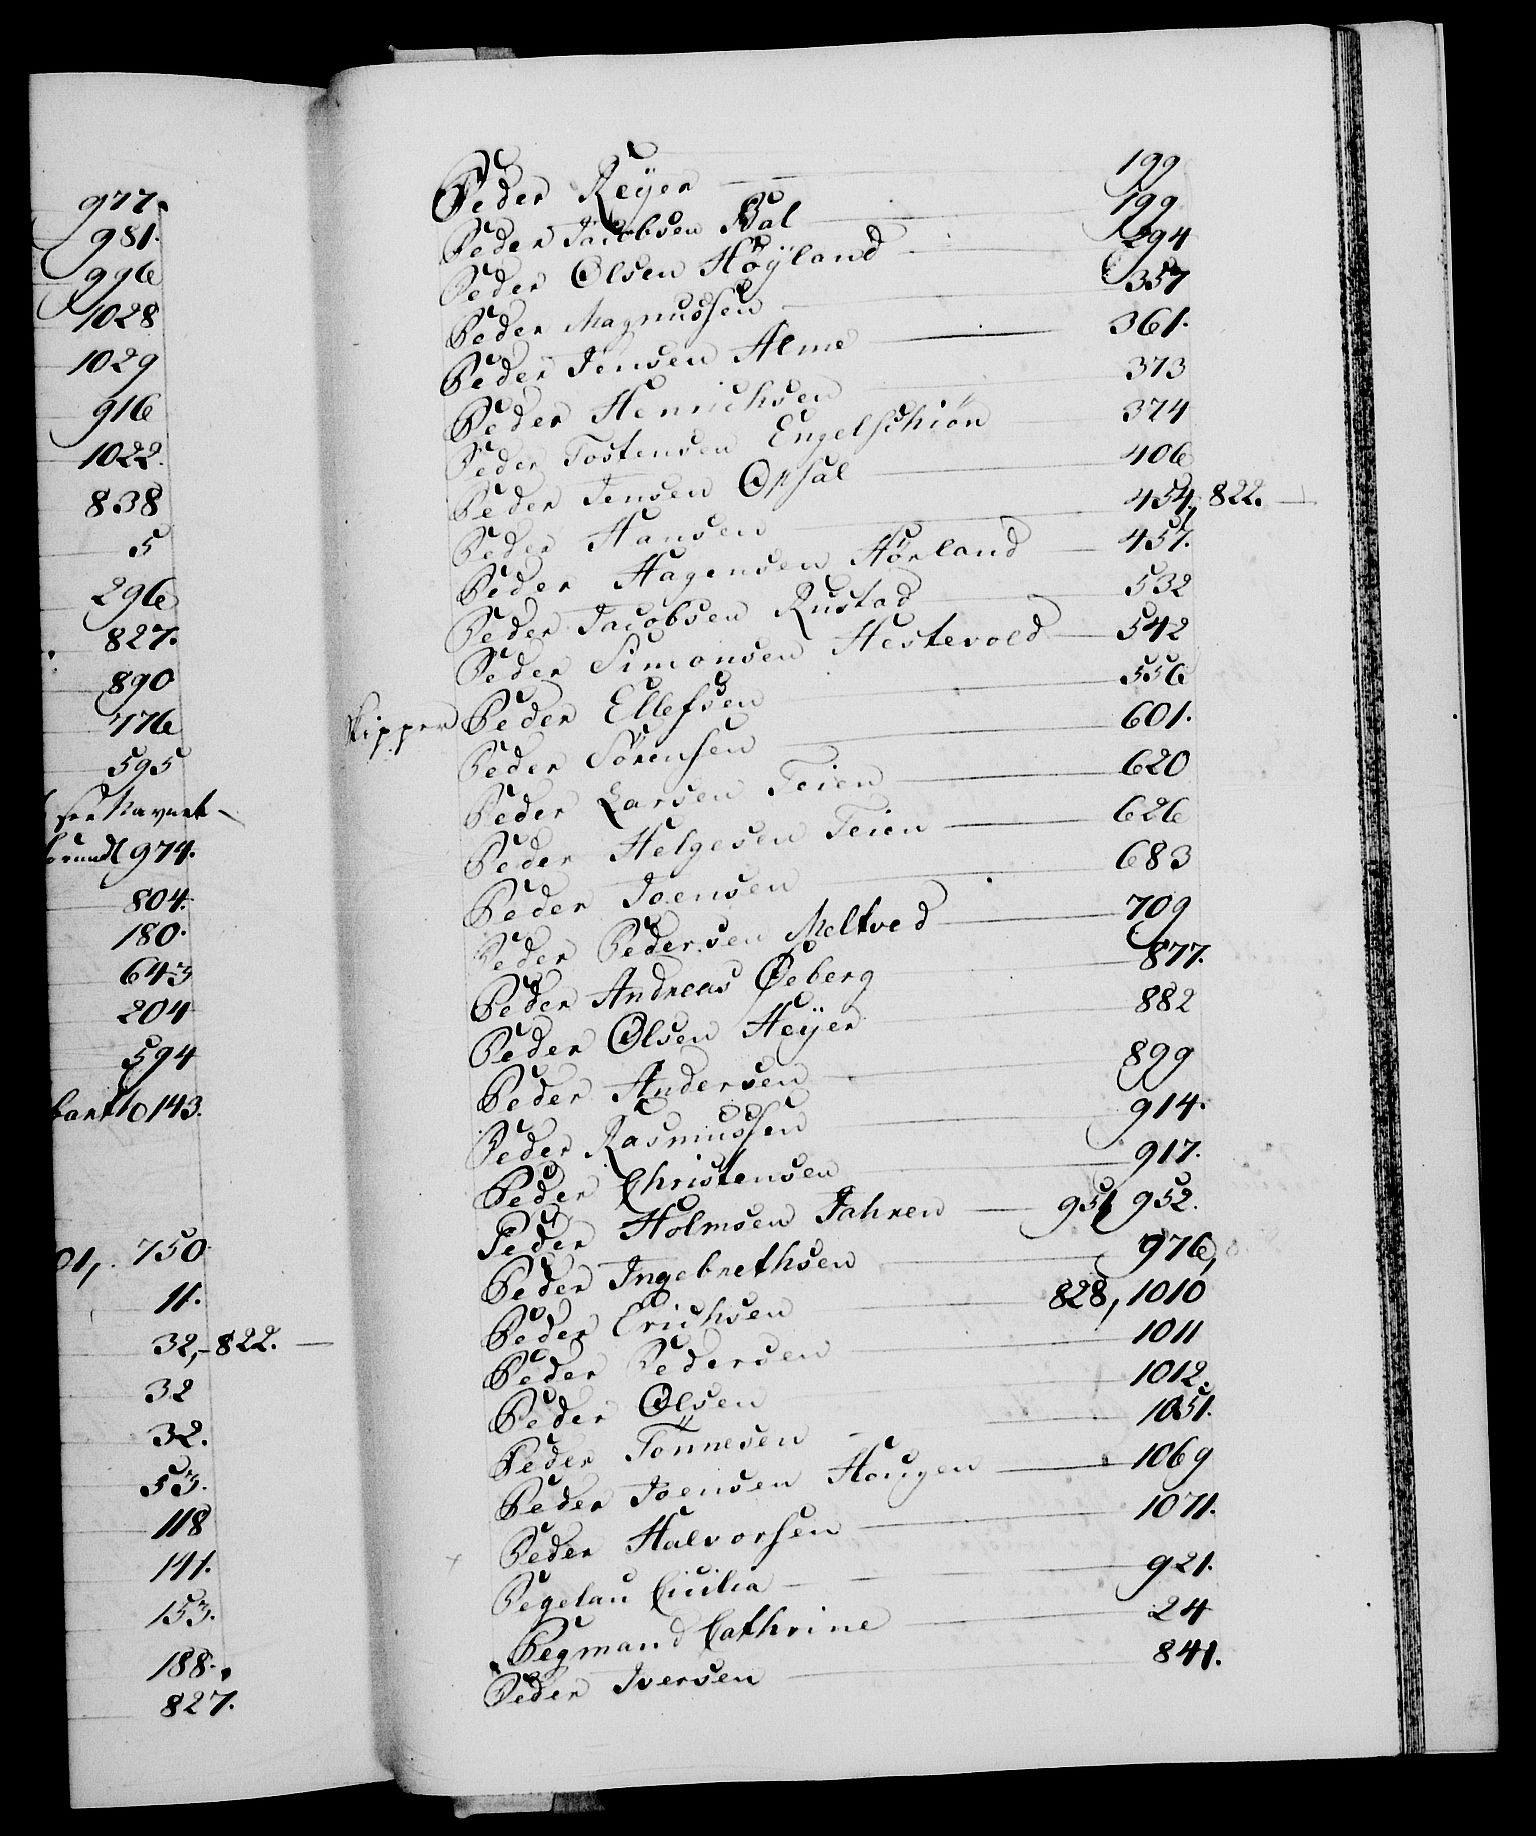 977.
981.
996
1028
1029
916
1022.
838
5
296
827.
890
776
595
see Navnet
974.
804.
180.
643
204
594
143.
01, 750
11.
32, 822.
32
32.
53.
118
141.
153.
188.
827.
Peder Reÿer 199
Peder Jacobsen Bal 199
Peder Olsen Höÿland 294
Peder Magnussen 357
Peder Jensen Alme 361.
Peder Henrichsen 373
Peder Tostensen Engelschiön 374
Peder Jensen Opsal 406
Peder Hansen 454, 822.
Peder Hagensen Hörland 457.
Peder Jacobsen Rustad 532
Peder Simonsen Hestevold 542
Skipper Peder Ellefsen 556
Peder Sörensen 601.
Peder Larsen Teien 620
Peder Helgesen Teien 626
Peder Joensen 683
Peder Pedersen Meltved 709
Peder Andreas Öeberg 877.
Peder Olsen Heÿer 882
Peder Andersen 899
Peder Rasmussen 914.
Peder Christensen 917.
Peder Holmsen Jahren 951 952.
Peder Ingebrethsen 976,
Peder Erichsen 828, 1010
Peder Pedersen 1011
Peder Olsen 1012.
Peder Tönnesen 1051.
Peder Joensen Hougen 1069
Peder Halvorsen 1071.
Pegelau Cicilia 921.
Pegmand Cathrine 24
Peder Iversen 841.